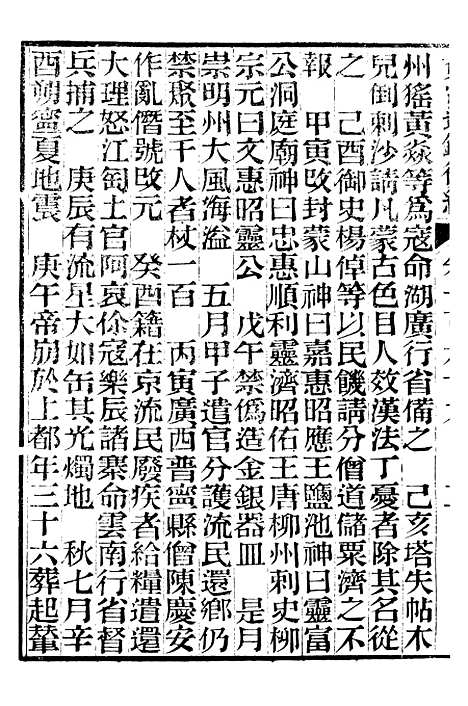 州猺黃焱等爲寇命湖廣行省備之　己亥塔失帖木
兒倒剌沙請凡蒙古色目人效漢法丁憂者除其名從
之　己酉御史楊倬等以民饑請分僧道儲粟濟之不
報　甲寅改封蒙山神曰嘉惠昭應王鹽池神曰靈富
公洞庭廟神曰忠惠順利靈濟昭佑王唐柳州刺史柳
宗元曰文惠昭靈公　戊午禁僞造金銀器皿　是月
崇明州大風海溢　五月甲子遣官分護流民還鄉仍
禁聚至千人者杖一百　丙寅廣西普寧縣僧陳慶安
作亂僭號改元　癸酉籍在京流民廢疾者給糧遣還
大理怒江甸土官阿哀你寇樂辰諸寨命雲南行省督
兵捕之　庚辰有流星大如缶其光燭地　秋七月辛
酉朔寧夏地震　庚午帝崩於上都年三十六葬起輦